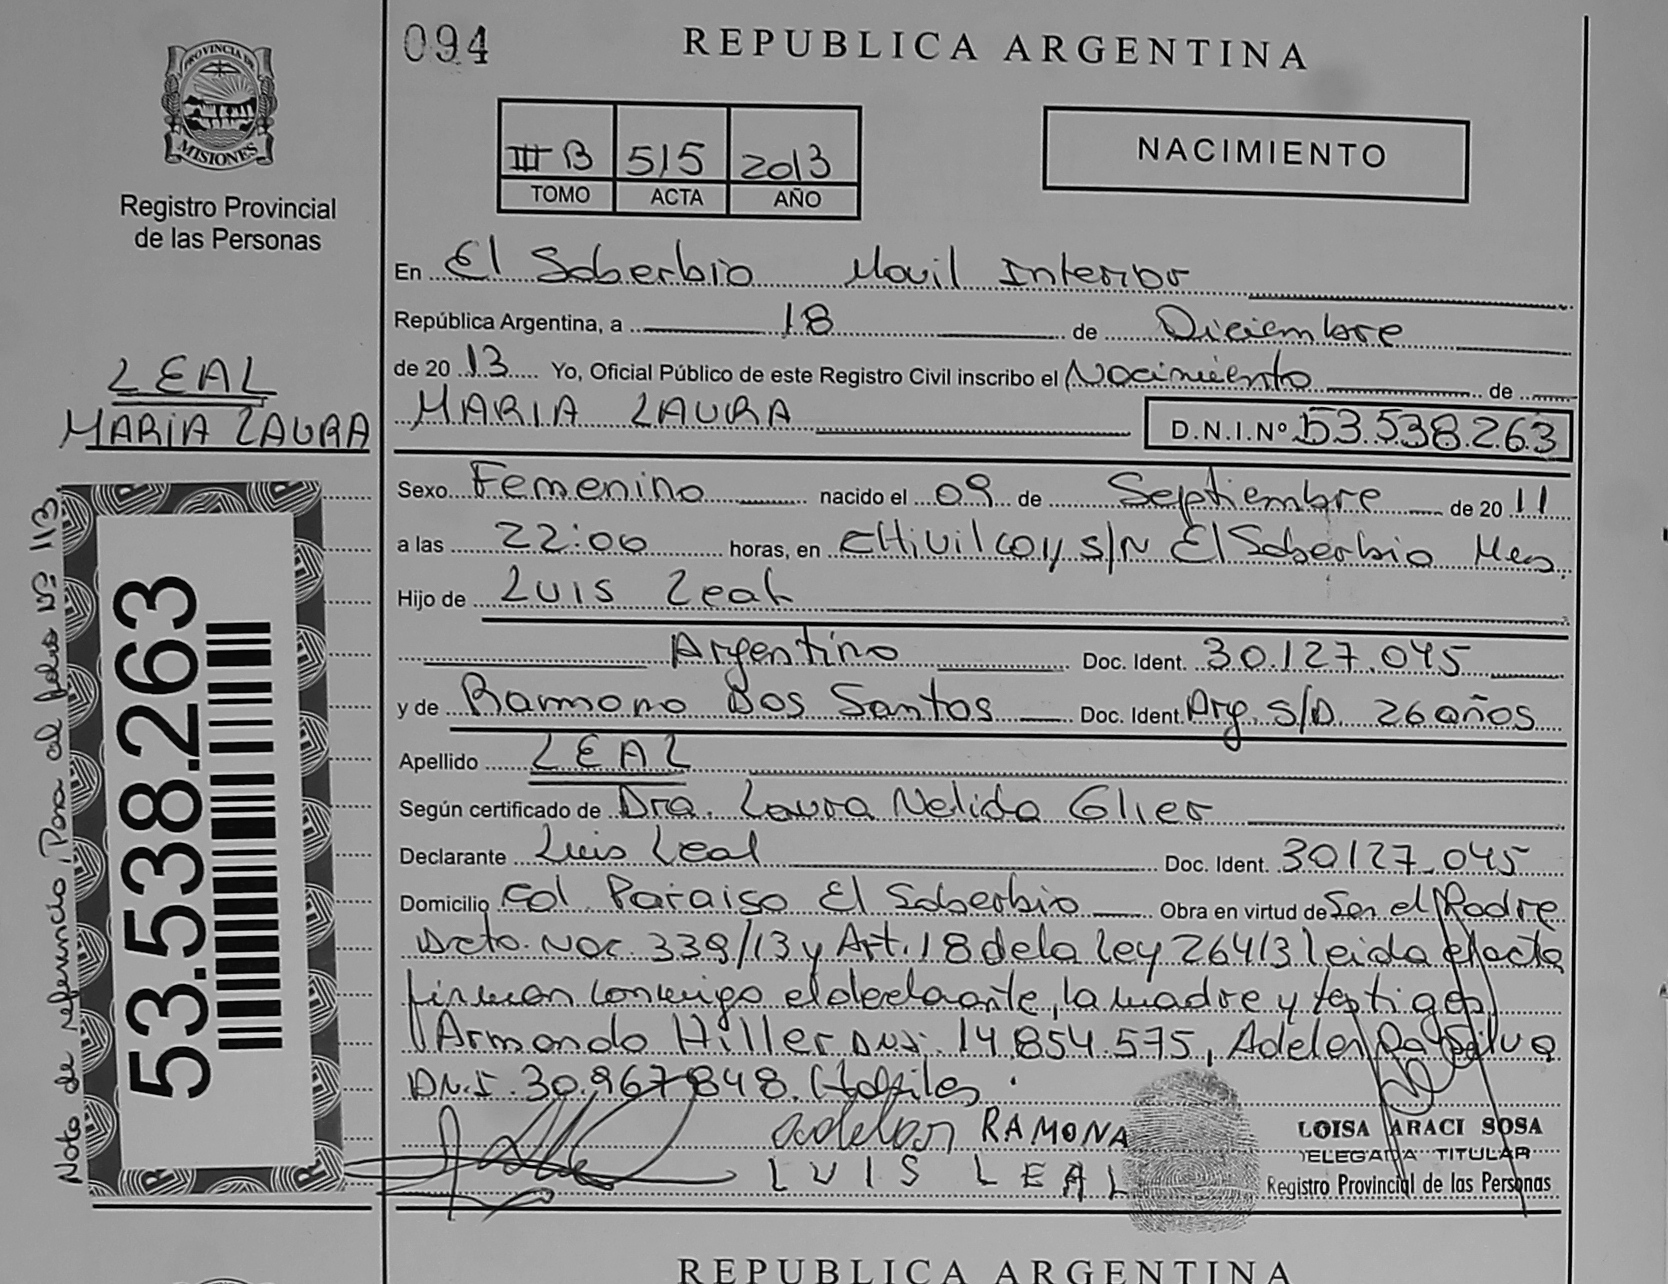 094
REPUBLICA ARGENTINA
PROVINCIA DE
MISIONES
Registro Provincial
de las Personas
III B 515 2013
TOMO ACTA AÑO
NACIMIENTO
En El Soberbio Movil Interior
República Argentina, a 18 de Diciembre
de 2013 Yo, Oficial Público de este Registro Civil inscribo el Nacimiento de
MARIA LAURA D.N.I.Nº 53.538.263
LEAL
MARIA LAURA
Sexo Femenino nacido el 09 de Septiembre de 2011
a las 22:00 horas, en CHivilcoy s/N El Soberbio Mes.
Hijo de Luis Leal
Argentino Doc. Ident. 30.127.045
y de Ramona Dos Santos Doc. Ident. Arg. S/D. 26 años
Apellido LEAL
Según certificado de Dra. Laura Nelida Glier
Declarante Luis Leal Doc. Ident. 30127.045
Domicilio Col. Paraiso El Soberbio Obra en virtud de Ser el Padre
Dcto. Nac. 339/13 y Art. 18 de la Ley 26413 leida el acta
firman conmigo el declarante, la madre y testigos
Armando Hiller DNI: 14.854.575, Adelar Da Silva
DNI. 30.967.848.
adelar RAMONA
LUIS LEAL
LOISA ARACI SOSA
DELEGADA TITULAR
Registro Provincial de las Personas
53.538.263
Nota de referencia, Pasa al folio Nº 113.
REPUBLICA ARGENTINA